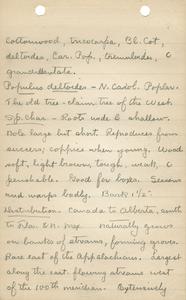 cottonwood, tricocarpa, Bl. Cot,
deltoides, Car. Pop, tremuloides, &
grandidentata.
Populus deltoides - N. Carol. Poplar.
The old tree-claim tree of the West.
Sp. Char - Roots wide & shallow.
Bole large but short. Reproduces from
suckers; coppices when young. Wood
soft, light brown, tough, weak, &
perishable. Good for boxes. Seasons
and warps badly. Bark 1 1/2".
Distribution. Canada to Alberta, south
to Fla. & N. Mex. naturally grows
on banks of streams, forming groves.
Rare east of the Appalachians. Largest
along the east flowing streams west
of the 100th meridian. Extensively